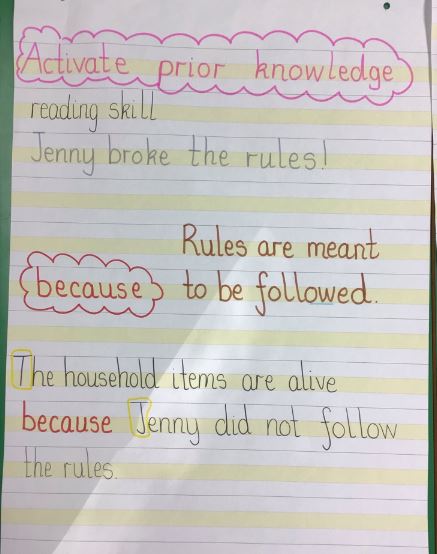 Activate prior knowledge
reading skill
Jenny broke the rules!
Rules are meant
because to be followed.
The household items are alive
because Jenny did not follow
the rules.